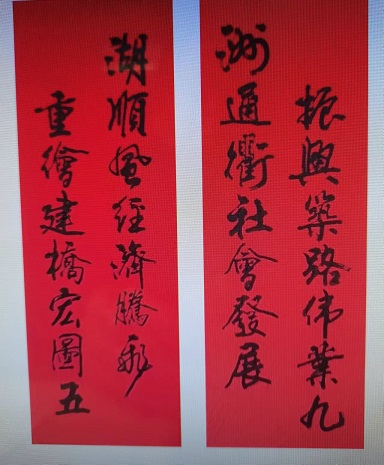 振興築路伟業九
洲通衢社會發展
重繪建橋宏圖五
湖順風經濟騰飛